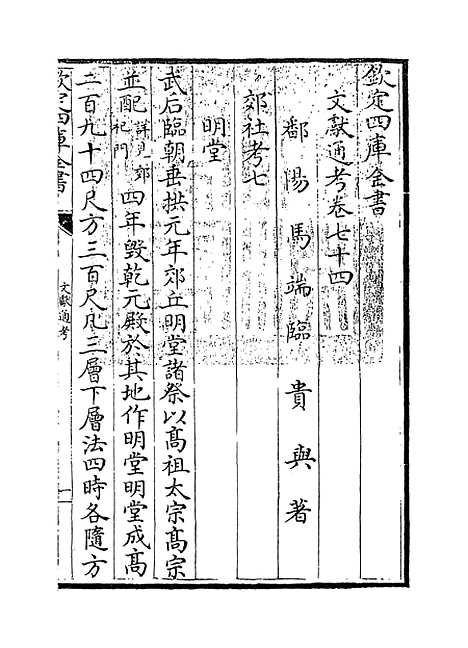 欽定四庫全書
文獻通考卷七十四
鄱陽馬端臨貴與著
郊社考七
明堂
武后臨朝垂拱元年郊丘明堂諸祭以髙祖太宗髙宗
並配詳見郊祀門四年毀乾元殿於其地作明堂明堂成髙
二百九十四尺方三百尺凡三層下層法四時各隨方
欽定四庫全書
文獻通考
一